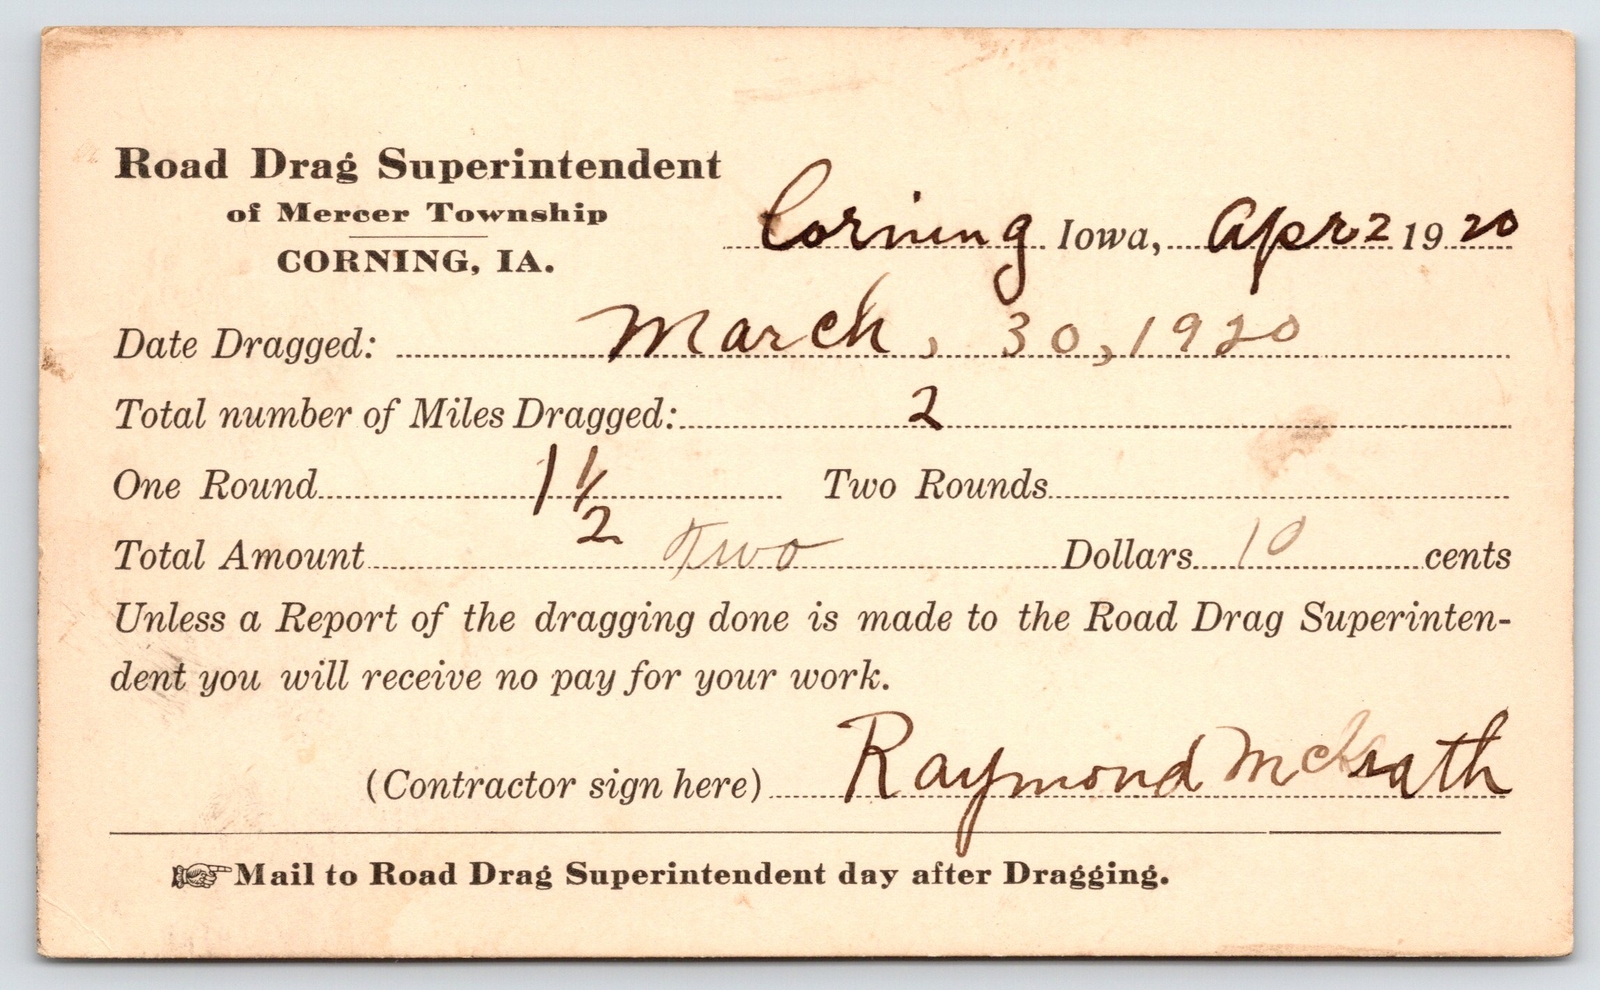 Road Drag Superintendent
of Mercer Township
CORNING, IA.
Corning Iowa, Apr 2 1920
Date Dragged: March, 30, 1920
Total number of Miles Dragged: 2
One Round 1 1/2 Two Rounds
Total Amount Two Dollars 10 cents
Unless a Report of the dragging done is made to the Road Drag Superinten-
dent you will receive no pay for your work.
(Contractor sign here) Raymond McGrath
☞Mail to Road Drag Superintendent day after Dragging.